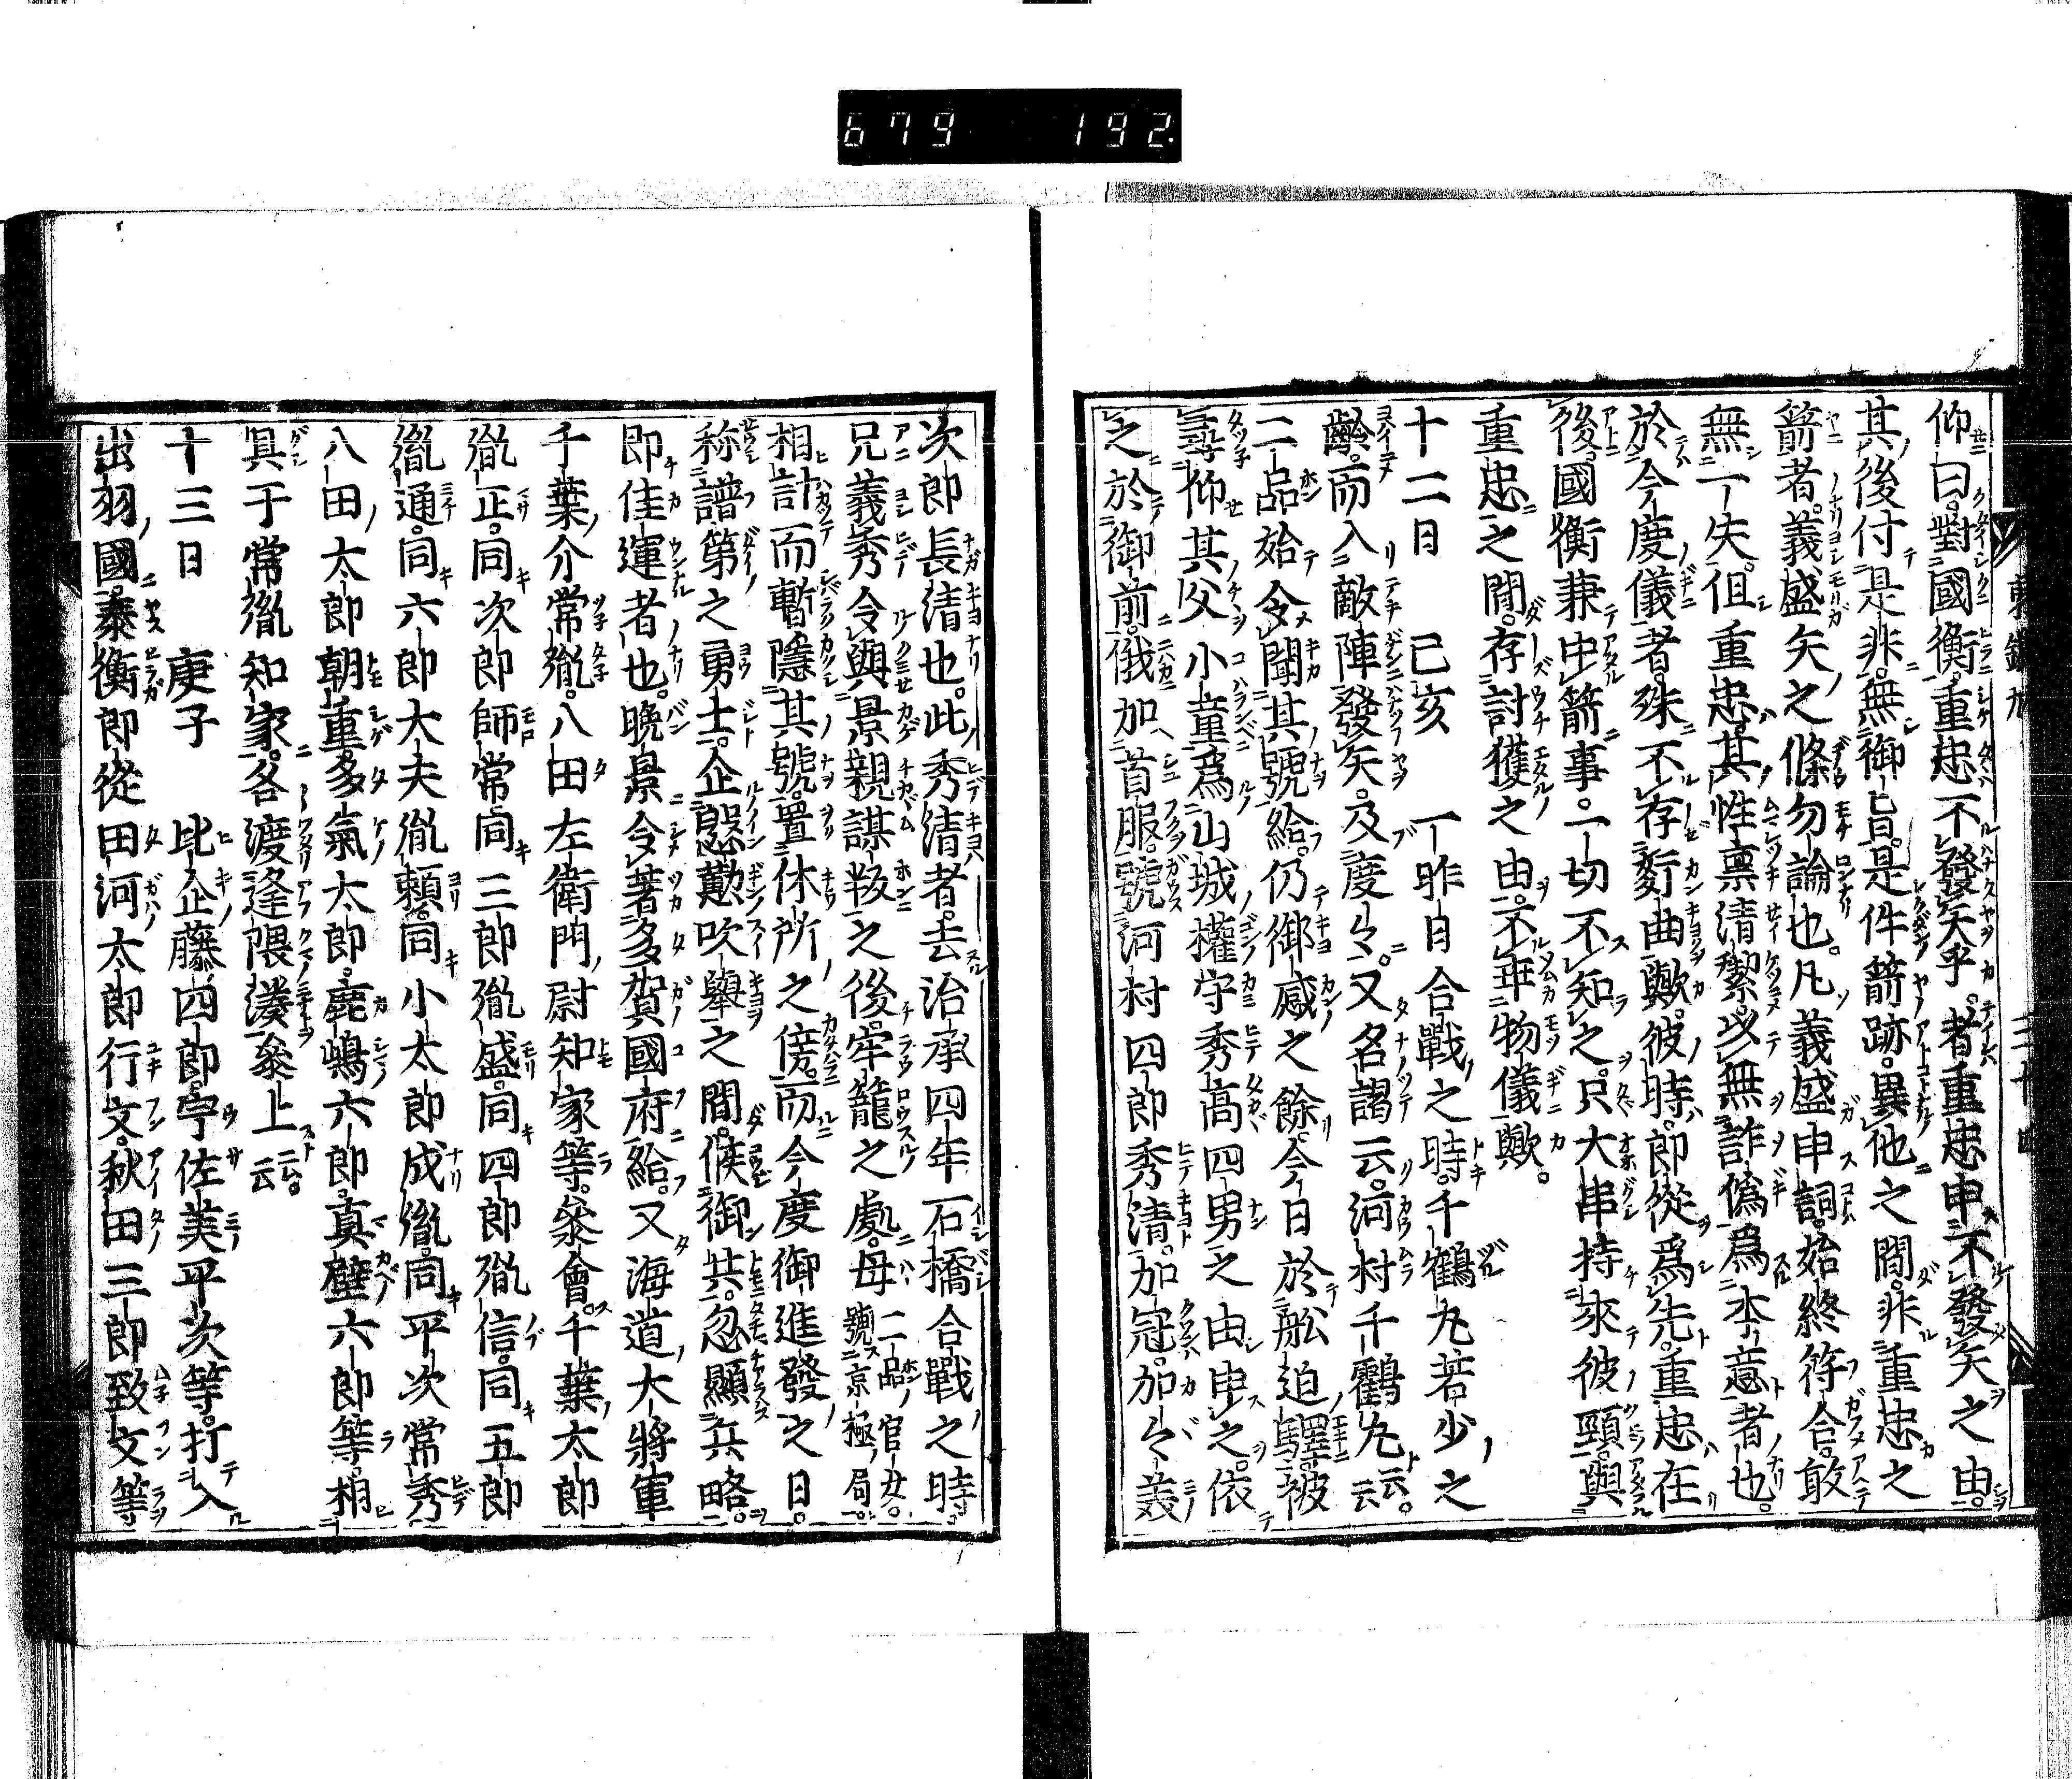 679 192.
仰曰。對國衡。重忠不發矢乎。者重忠申不發矢之由。
其後付是非。無御旨。是件箭跡。異他之間。非重忠之
箭者。義盛矢之條勿論也。凡義盛申詞。始終符合。敢
無一失。但重忠。其性稟清潔。以無詐僞爲本意者也。
於今度儀者。殊不存姧曲歟。彼時。郎從爲先。重忠在
後。國衡兼中箭事。一切不知之。只大串持來彼頸。與
重忠之間。存討獲之由。不乖物儀歟。
十二日 己亥 一昨日合戰之時。千鶴丸若少之
齡。而入敵陣發矢。及度々。又名謁云。河村千鶴丸云云。
二品始令聞其號給。仍御感之餘。今日於舩迫驛。被
尋仰其父。小童爲山城權守秀高四男之由申之。依
之於御前。俄加首服。號河村四郎秀清。加冠。加々美
次郎長清也。此秀清者。去治承四年石橋合戰之時。
兄義秀令與景親謀叛之後。牢籠之處。母二品官女。號京極局。
相計而暫隱其號。置休所之傍。而今度御進發之日。
称譜第之勇士。企慇懃吹擧之間。候御共。忽顯兵略。
即佳運者也。晩景令著多賀國府給。又海道大將軍
千葉介常胤。八田左衛門尉知家等。參會。千葉太郎
胤正。同次郎師常。同三郎胤盛。同四郎胤信。同五郎
胤通。同六郎大夫胤頼。同小太郎成胤。同平次常秀
八田太郎朝重。多氣太郎。鹿嶋六郎。真壁六郎等。相
具于常胤知家。各渡逢隈湊參上云云。
十三日 庚子 比企藤四郎。宇佐美平次等。打入
出羽國。泰衡郎從田河太郎行文。秋田三郎致文等